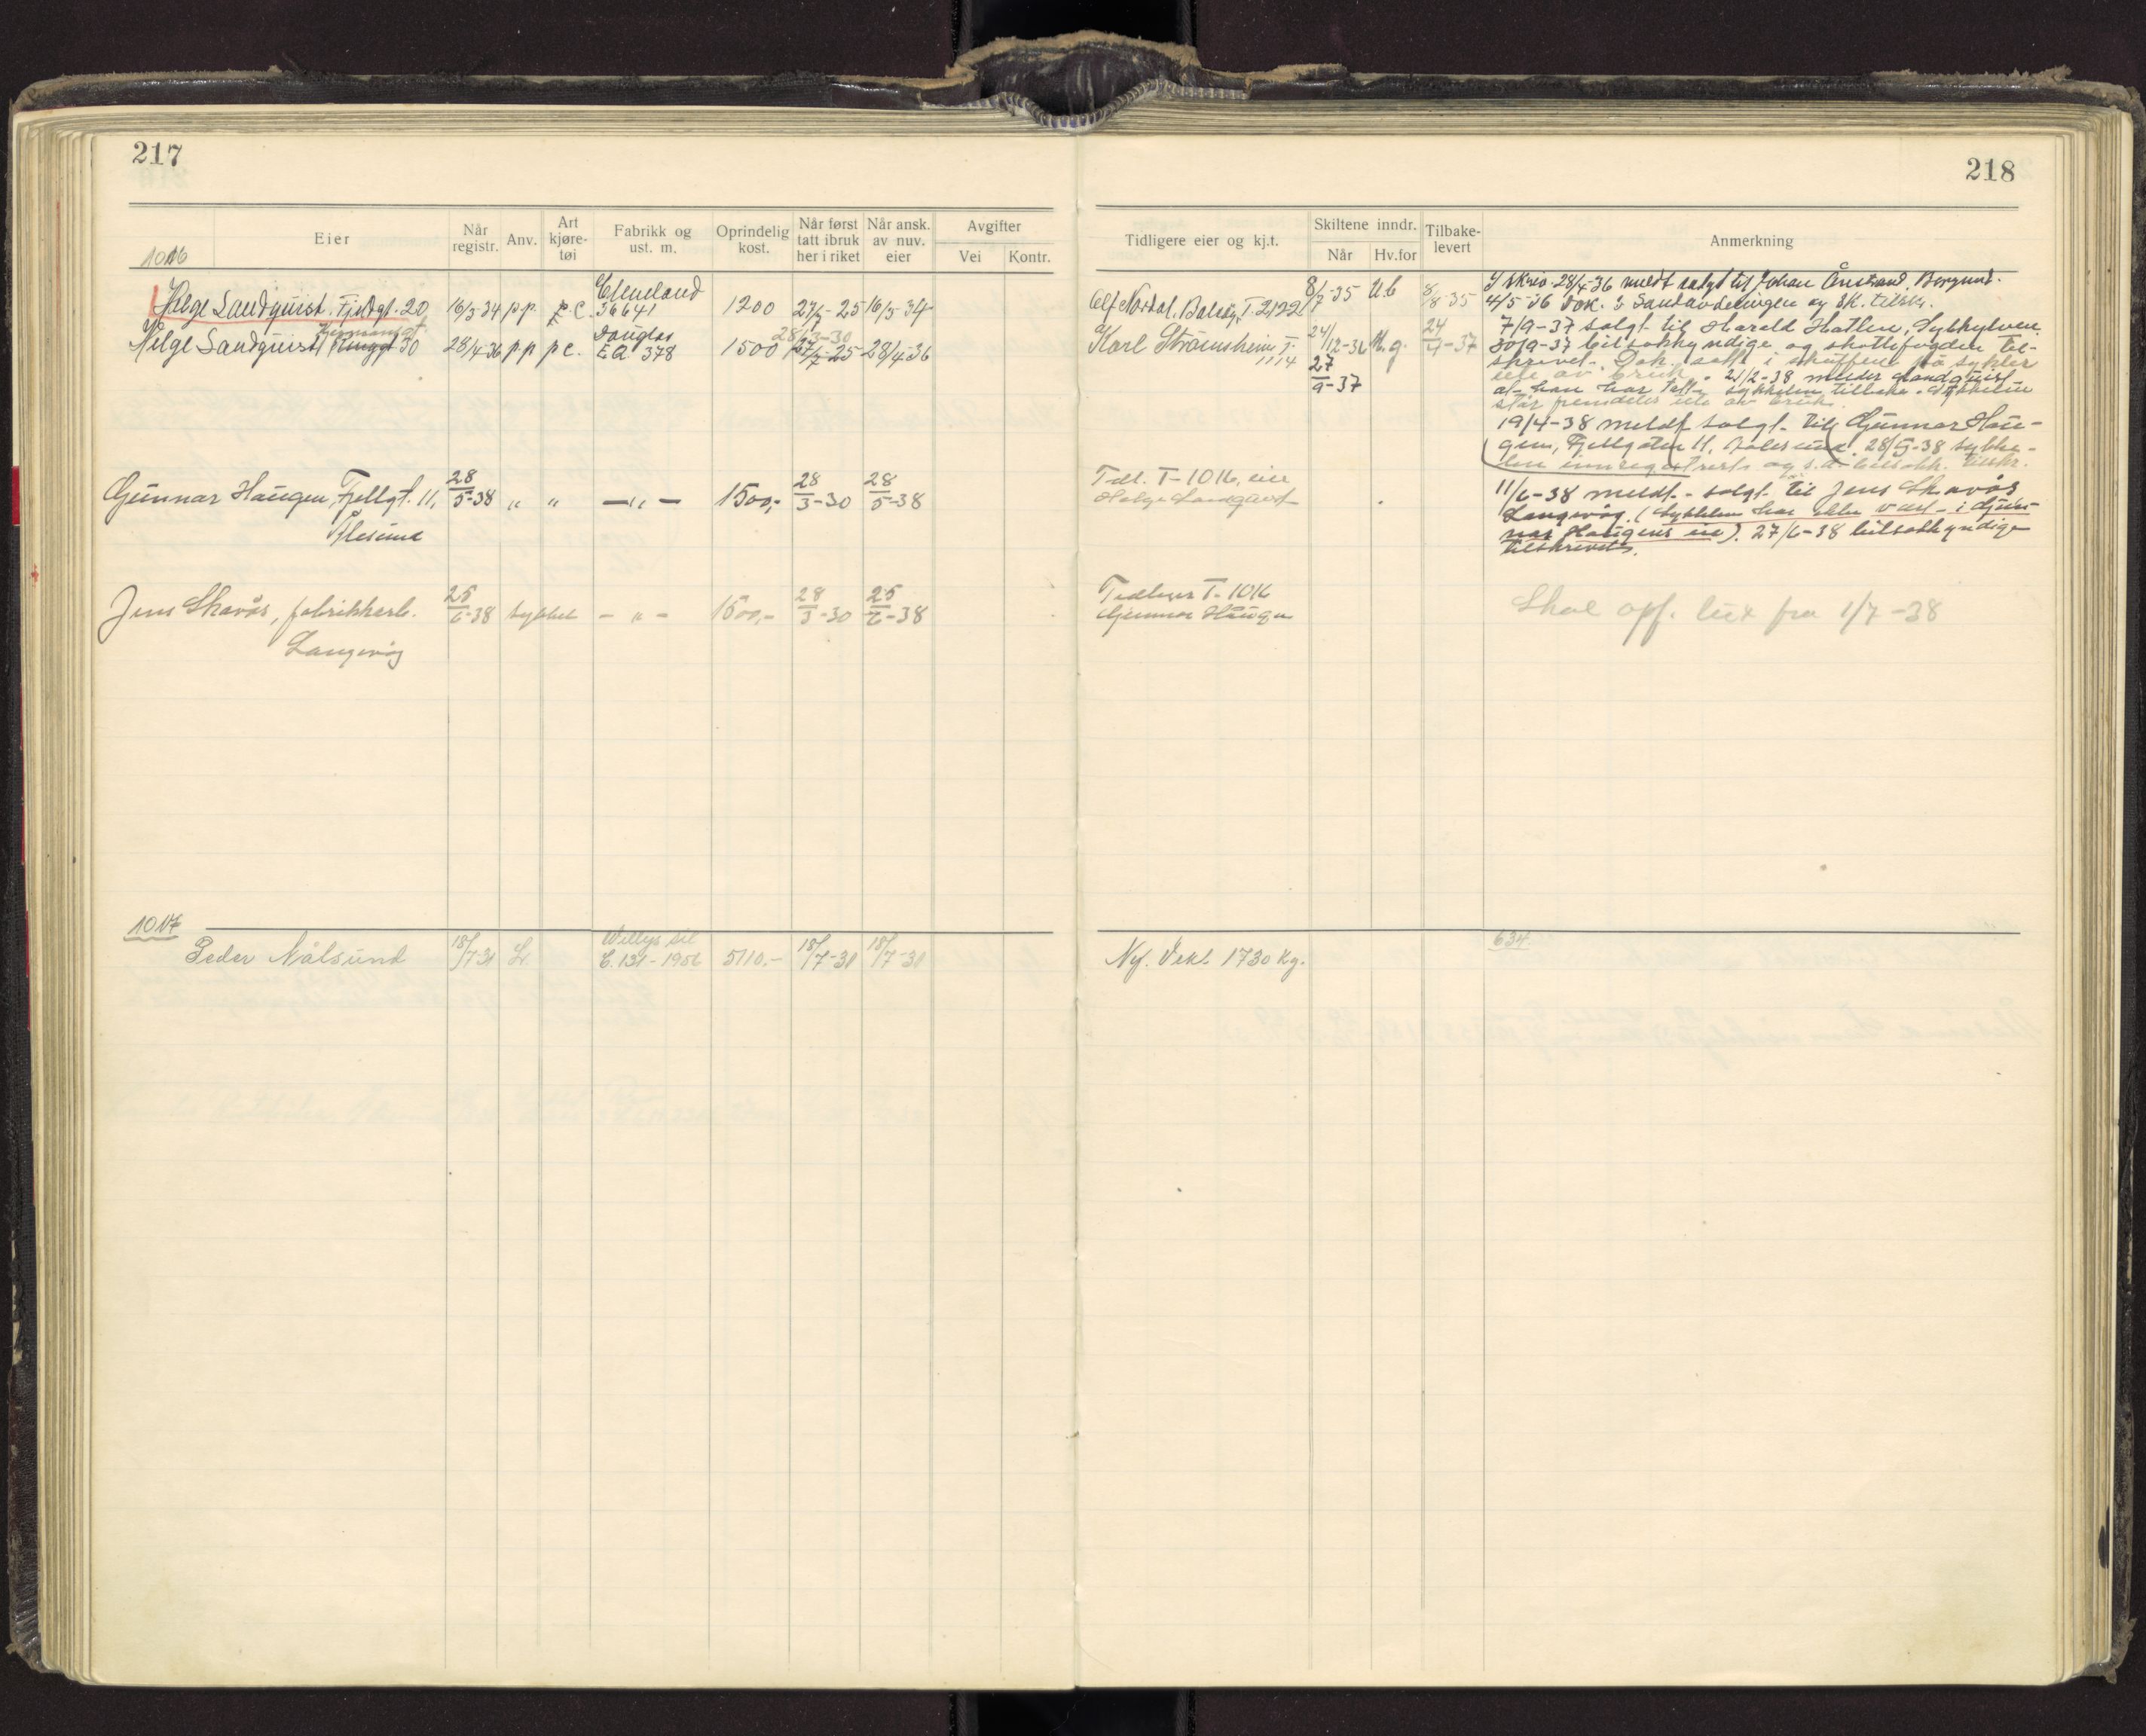 217
Eier
Når registr.
Anv.
Art kjøre-tøi
Fabrikk og ust. m.
Oprindelig kost.
Når først tatt ibruk her i riket
Når ansk. av nuv. eier
Avgifter
Vei
Kontr.
1016
Helge Sandquist. Fjeldgt. 20 16/3-34 p p. p. c. Cleveland 36641 1200 16/3-34
28/3-30
Helge Sandquist 30 28/4-36 p p p c. Douglas EA 378 1500 28/4-36
Gunnar Haugen, Fjellgt. 11, 28/5-38 " " -"- 1500,- 28/3-30 28/5-38
Ålesund
Jens Skavås, fabrikkarb. 25/6-38 sykkel -"- 1500,- 28/3-30 25/6-38
Langevåg
1017
Peder Målsund 18/7-31 L. Willys six C. 131-1956 5110.- 18/7-31 18/7-31
218
Tidligere eier og kj.t.
Skiltene inndr.
Når
Hv.for
Tilbake-levert
Anmerkning
Alf Nordal. T-2122 8/7-35 U.b 8/8-35
Karl Strømsheim T. 1114 24/12-36 24/4-37
27/9-37
I skriv 28/4-36 meldt solgt til Johan Ånstrand, Borgund.
4/5-36 Dok. Sandavdelingen og sk. tilskr.
7/9-37 solgt til Harald Hatlen, Sykkylven.
30/9-37 bilsakkyndige og skattefogden til-
skrevet. Dok. satt i skuffene på sykler
ute av bruk. 21/2-38 melder Sandquist
at han har tatt sykkelen tilbake. Sykkelen
står fremdeles ute av bruk.
19/4-38 meldt solgt til Gunnar Hau-
gen, Fjellgaten 11, Ålesund. 28/5-38 sykke-
len innregistrert og s.d. bilsakk. tilskr.
Tidl. T-1016, eier
Helge Sandquist
11/6-38 meldt solgt til Jens Skavås
Langevåg. (Sykkelen har ikke vært i Gun-
nar Haugens eie). 27/6-38 bilsakkyndige
tilskrevet.
Tidligere T-1016
Gunnar Haugen
Skal opf. fra 1/7-38
634.
Ny. Vekt 1730 kg.